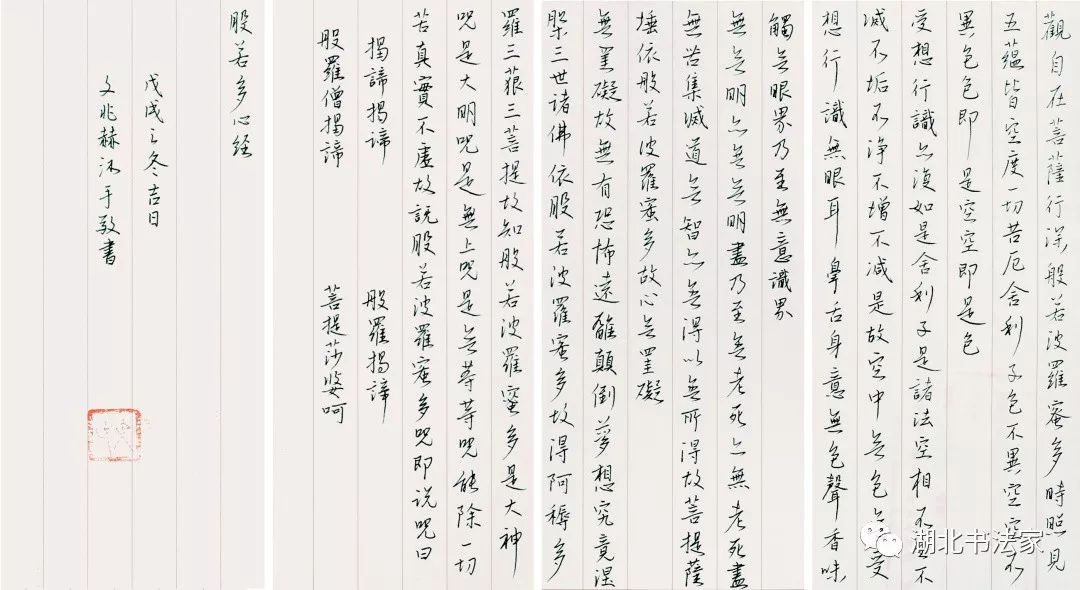 觀自在菩薩行深般若波羅蜜多時照見
五蘊皆空度一切苦厄舍利子色不異空空不
異色色即是空空即是色
受想行識亦復如是舍利子是諸法空相不生不
滅不垢不淨不增不減是故空中無色無受
想行識無眼耳鼻舌身意無色聲香味
觸無眼界乃至無意識界
無無明亦無無明盡乃至無老死亦無老死盡
無苦集滅道無智亦無得以無所得故菩提薩
埵依般若波羅蜜多故心無罣礙
無罣礙故無有恐怖遠離顛倒夢想究竟涅
槃三世諸佛依般若波羅蜜多故得阿耨多
羅三藐三菩提故知般若波羅蜜多是大神
咒是大明咒是無上咒是無等等咒能除一切
苦真實不虛故說般若波羅蜜多咒即说咒曰
揭諦揭諦 般羅揭諦
般羅僧揭諦 菩提莎婆呵
般若多心經
戊戌之冬吉日
文兆赫沐手敬書
湖北书法家